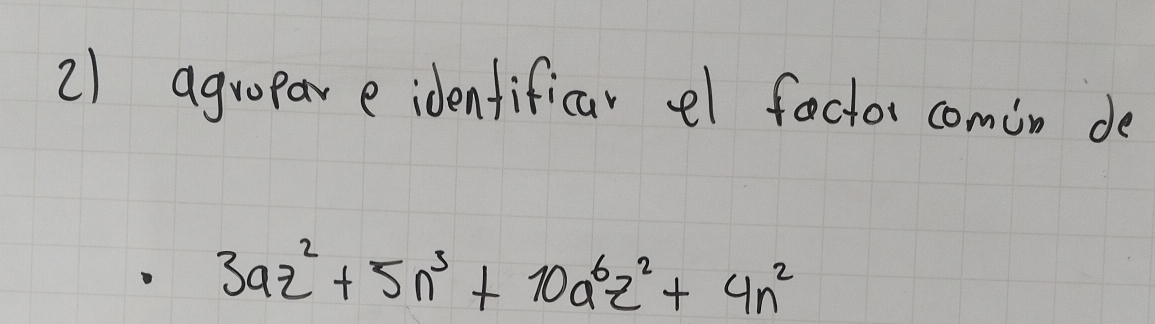 2) agrupar e identificar el factor común de
• 3az² + 5n³ + 10a⁶z² + 4n²